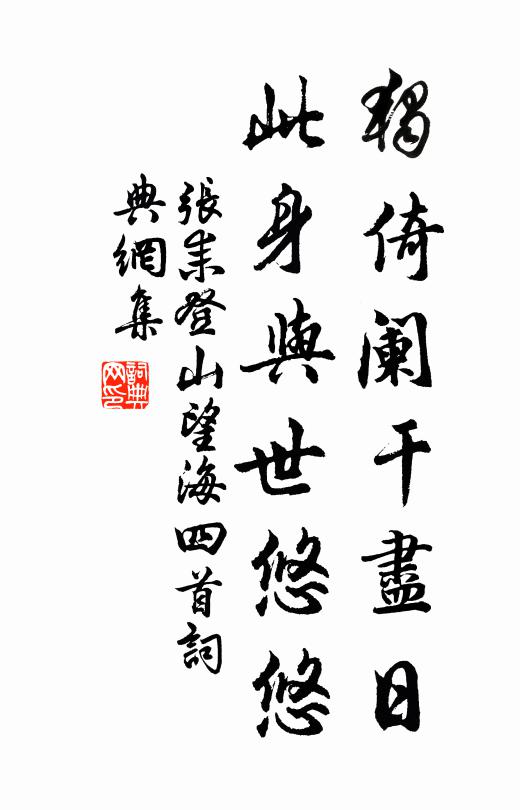 獨倚闌干盡日
此身與世悠悠
張耒登山望海四首詞
典網集
詞典網印